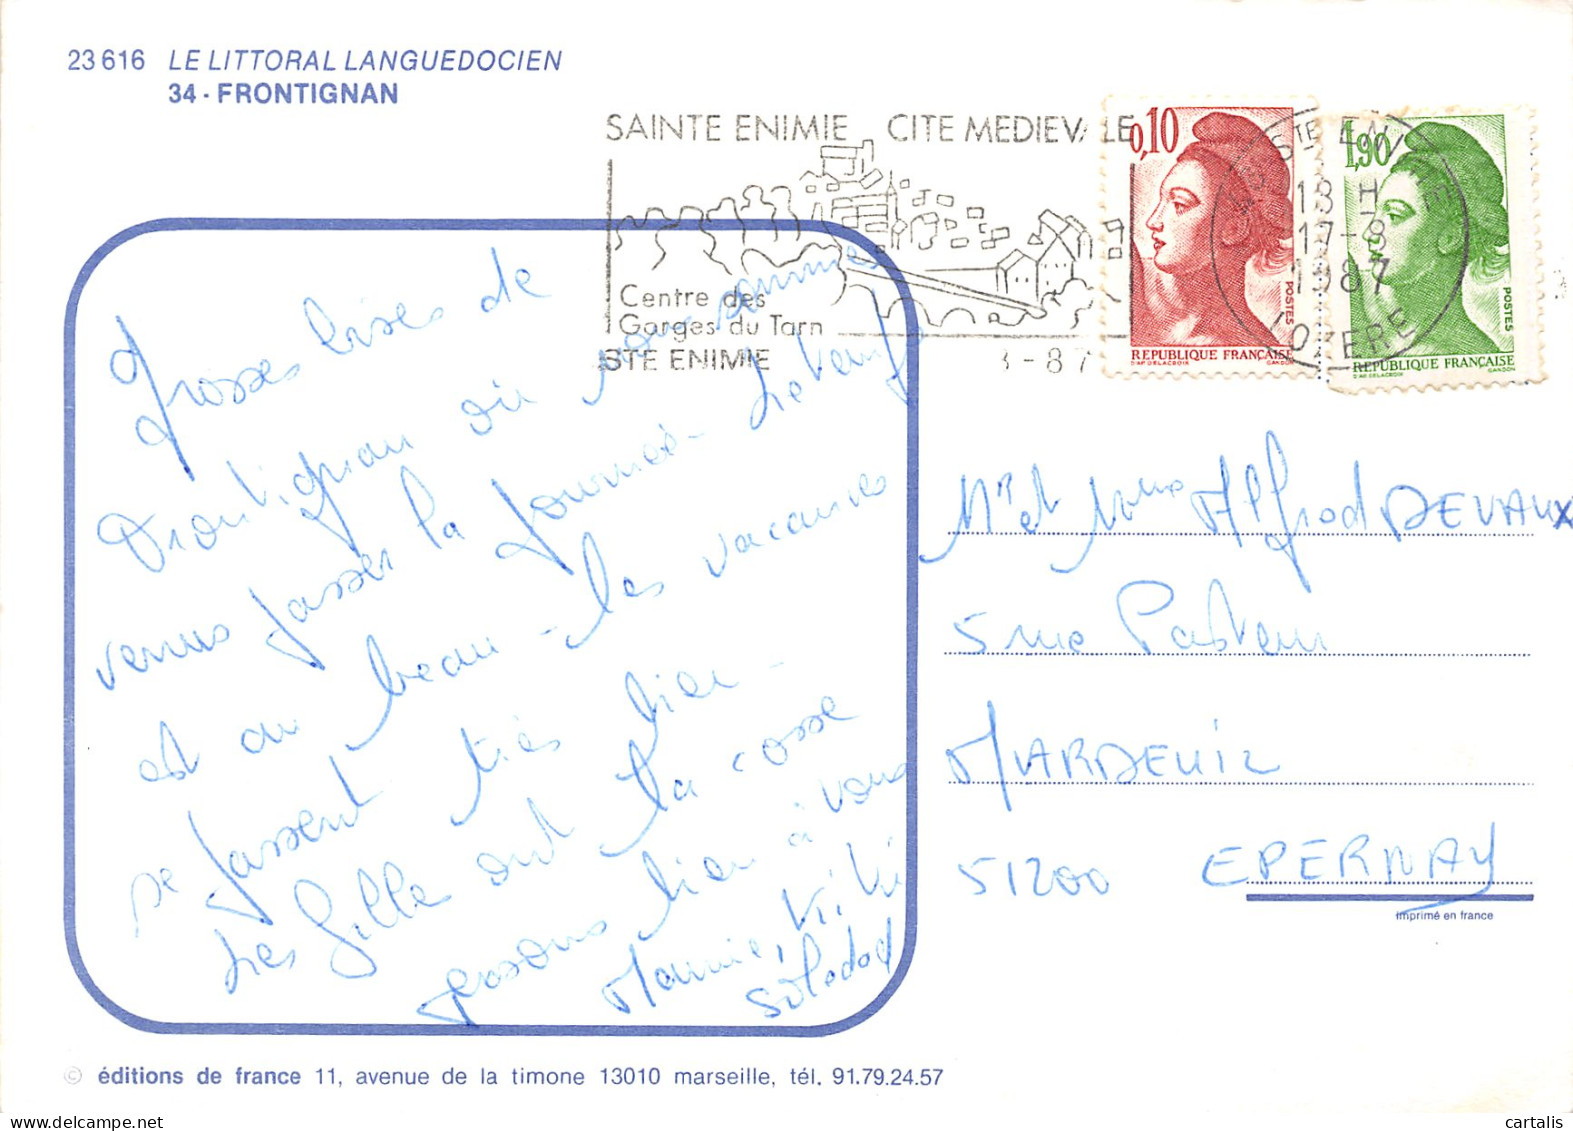 23 616 LE LITTORAL LANGUEDOCIEN
34 - FRONTIGNAN
SAINTE ENIMIE CITE MEDIEVALE
Centre des
Gorges du Tarn
STE ENIMIE
8-87
0,10
POSTES
REPUBLIQUE FRANÇAISE
D'AP. DELACROIX GANDON
1,90
POSTES
REPUBLIQUE FRANÇAISE
D'AP. DELACROIX GANDON
STE ENIMIE
18 H
17-8
1987
LOZERE
Grosses bises de
Frontignan où nous sommes
venus passer la journée - Le temps
est au beau - les vacances
se passent très bien -
Les fille ont la
bien à vous
Mamie, Kiki
Soledad
Mr et Mme Alfred DEVAUX
5 rue Pasteur
MARDEUIL
51200 EPERNAY
imprimé en france
© éditions de france 11, avenue de la timone 13010 marseille, tél. 91.79.24.57
cartalis
delcampe.net